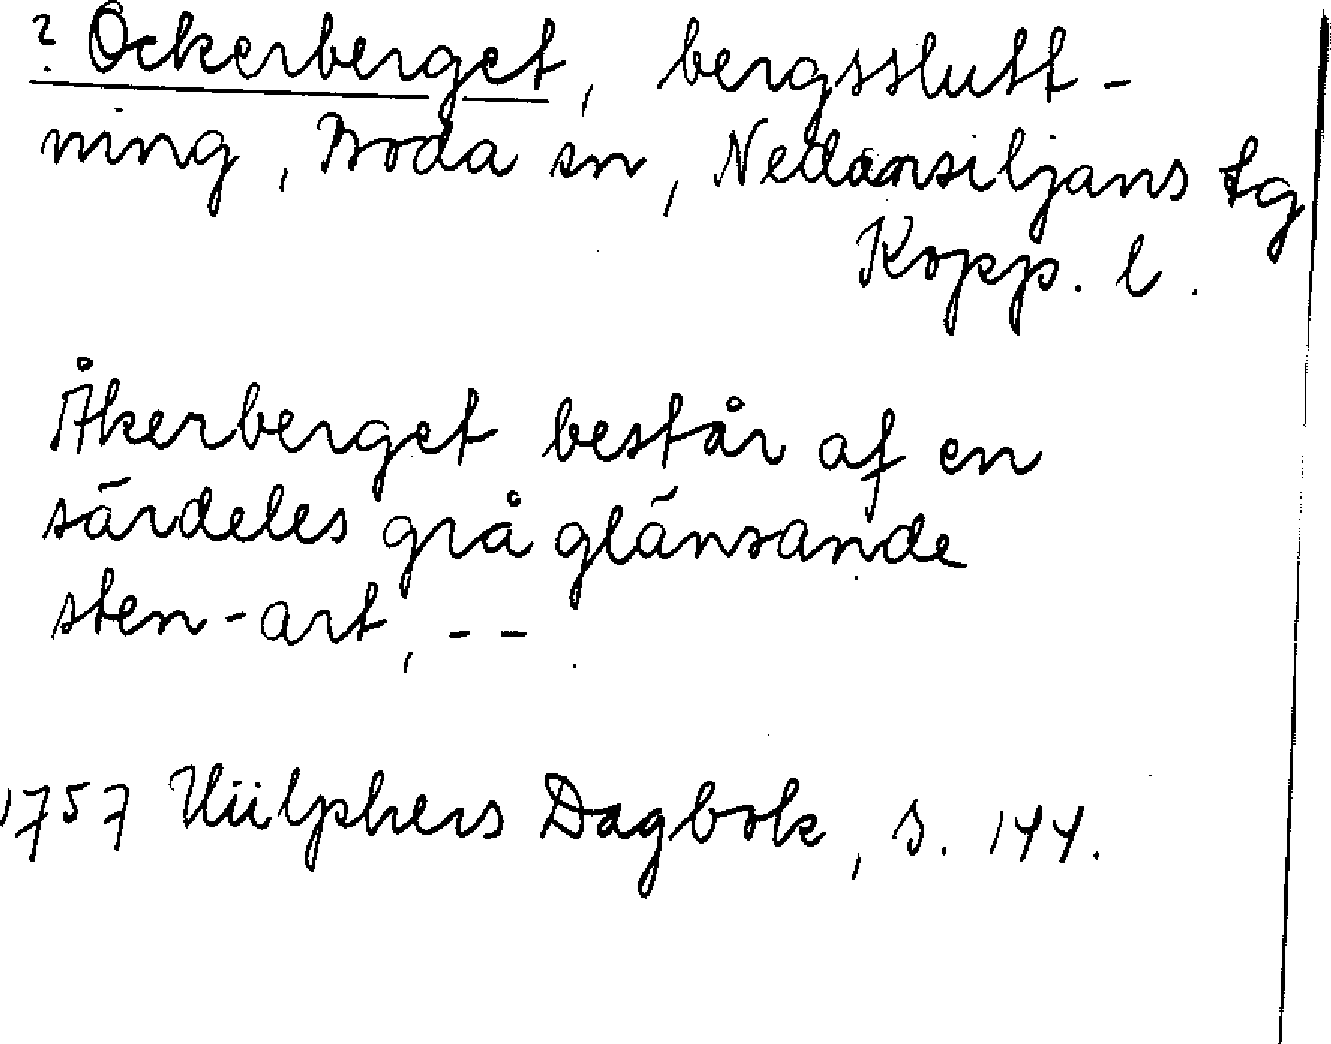 ? Ockerberget, bergsslutt-
ning, Boda sn, Nedansiljans tg
Kopp. l.
Åkerberget består af en
särdeles grå glänsande
sten-art, --
1757 Hülphers Dagbok, s. 144.